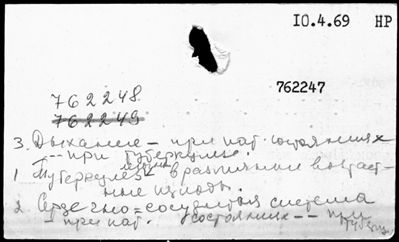 10.4.69 НР
762247
762248
762249
3. Дыхание - при пат. состояниях
-- при туберкулезе.
1 Туберкулез легких в различные возраст-
ные периоды.
2 Сердечно=сосудистая система
- при пат. состояниях -- при туберкул.